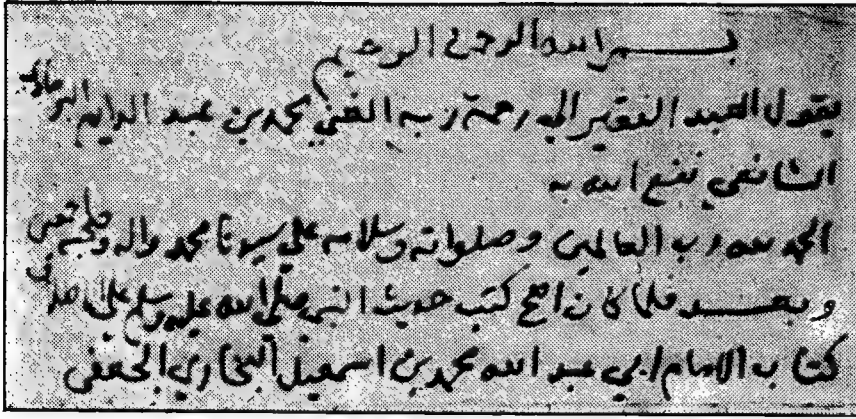 بسم الله الرحمن الرحيم
يقول العبد الفقير الى رحمة ربه الغني محمد بن عبد الدايم البرماوي
الشافعي نفع الله به
الحمد لله رب العالمين وصلواته وسلامه علي سيدنا محمد واله وصحبه اجمعين
وبعد فلما كان اصح كتب حديث النبي صلى الله عليه وسلم
كتاب الامام ابي عبد الله محمد بن اسمعيل البخاري الجعفي